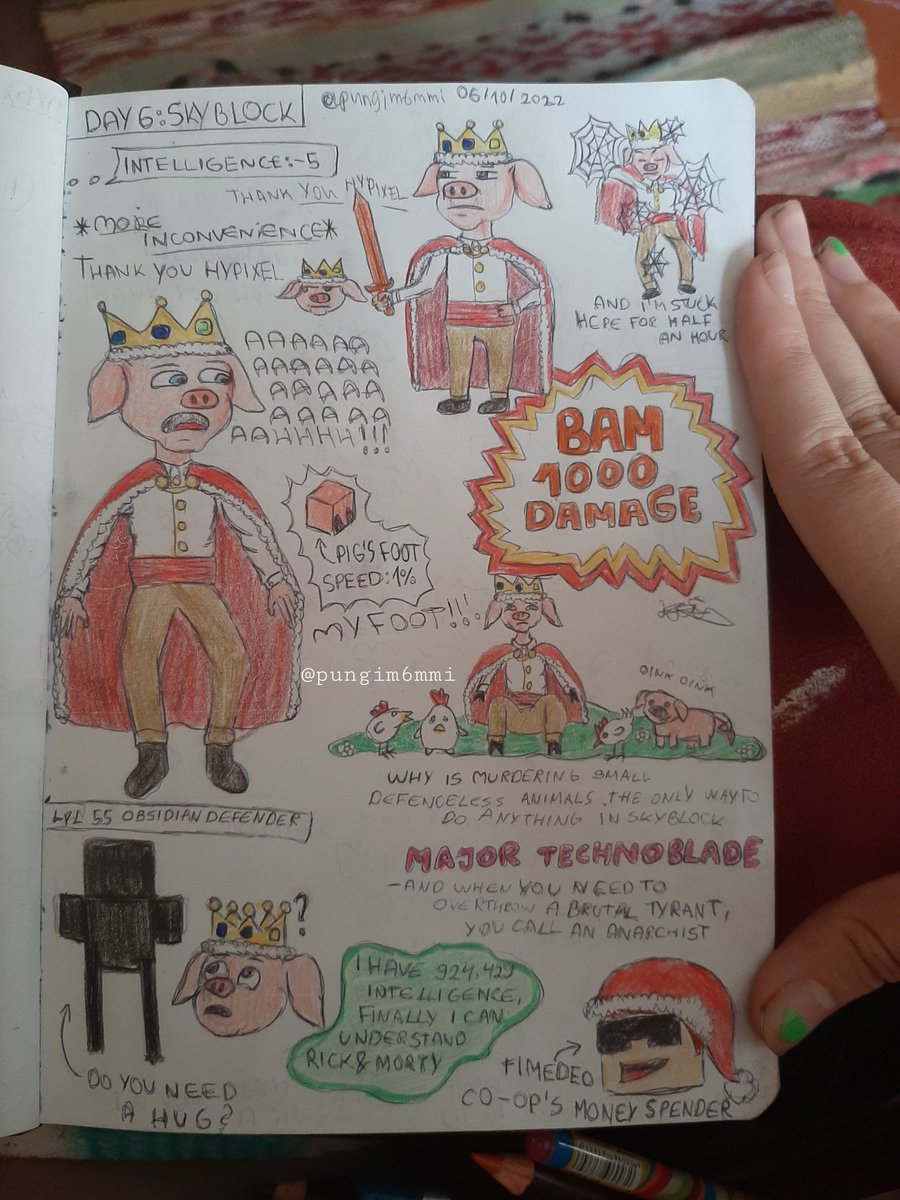 DAY 6: SKYBLOCK
@pungim6mmi 06/10/2022
INTELLIGENCE:-5
THANK YOU HYPIXEL
*MORE
INCONVENIENCE*
THANK YOU HYPIXEL
AND I'M STUCK
HERE FOR HALF
AN HOUR
AAAAAA
AAAAAA
AAAAA
AAAAA
AAHHHH!!!
BAM
1000
DAMAGE
PIG'S FOOT
SPEED:1%
MY FOOT!!!
@pungim6mmi
OINK OINK
WHY IS MURDERING SMALL
DEFENCELESS ANIMALS THE ONLY WAY TO
DO ANYTHING IN SKYBLOCK
LVL 55 OBSIDIAN DEFENDER
MAJOR TECHNOBLADE
-AND WHEN YOU NEED TO
OVERTHROW A BRUTAL TYRANT,
YOU CALL AN ANARCHIST
?
I HAVE 924,429
INTELLIGENCE,
FINALLY I CAN
UNDERSTAND
RICK & MORTY
DO YOU NEED
A HUG?
FIMEDEO
CO-OP'S MONEY SPENDER